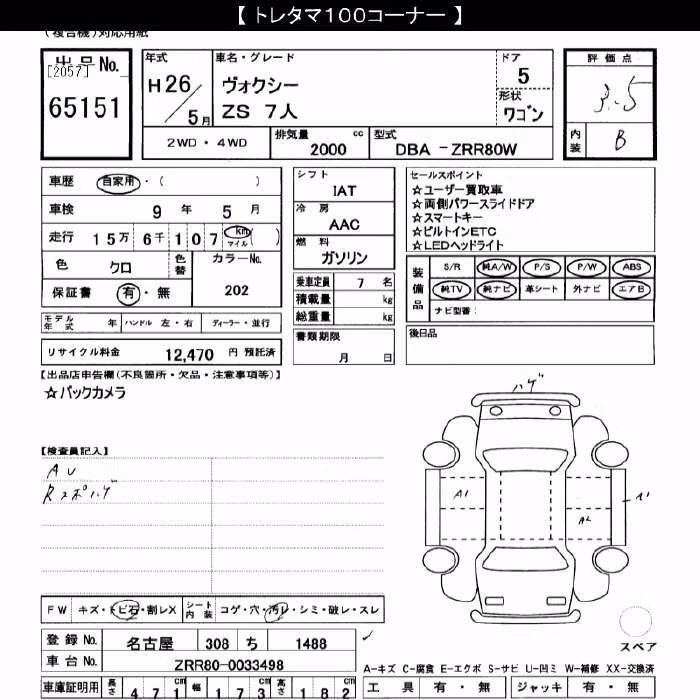 【 トレタマ100コーナー 】
(複合機)対応用紙
出品No. [2057] 65151
年式 H26/5月
車名・グレード ヴォクシー ZS 7人
ドア 5
形状 ワゴン
評価点 3.5
内装 B
2WD・4WD
排気量 2000 cc
型式 DBA -ZRR80W
車歴 自家用・( )
車検 9年 5月
走行 15万 6千 107 km マイル ( )
色 クロ 色替 カラーNo. 202
保証書 有・無
モデル年式 年 ハンドル 左・右 ディーラー・並行
リサイクル料金 12,470 円 預託済
シフト IAT
冷房 AAC
燃料 ガソリン
乗車定員 7 名
積載量 kg
総重量 kg
書類期限 月 日
セールスポイント
☆ユーザー買取車
☆両側パワースライドドア
☆スマートキー
☆ビルトインETC
☆LEDヘッドライト
装備品 S/R 純A/W P/S P/W ABS
純TV 純ナビ 革シート 外ナビ エアB
ナビ型番:
後日品
【出品店申告欄(不良箇所・欠品・注意事項等)】
☆バックカメラ
【検査員記入】
AU
Rスポハゲ
ハゲ
A1
A2
FW キズ・トビ石・割レX シート内装 コゲ・穴・汚レ・シミ・破レ・スレ
登録No. 名古屋 308 ち 1488
車台No. ZRR80-0033498
車庫証明用 長さ 471cm 幅 173cm 高さ 182cm
スペア
A-キズ C-腐食 E-エクボ S-サビ U-凹ミ W-補修 XX-交換済
工具 有・無 ジャッキ 有・無